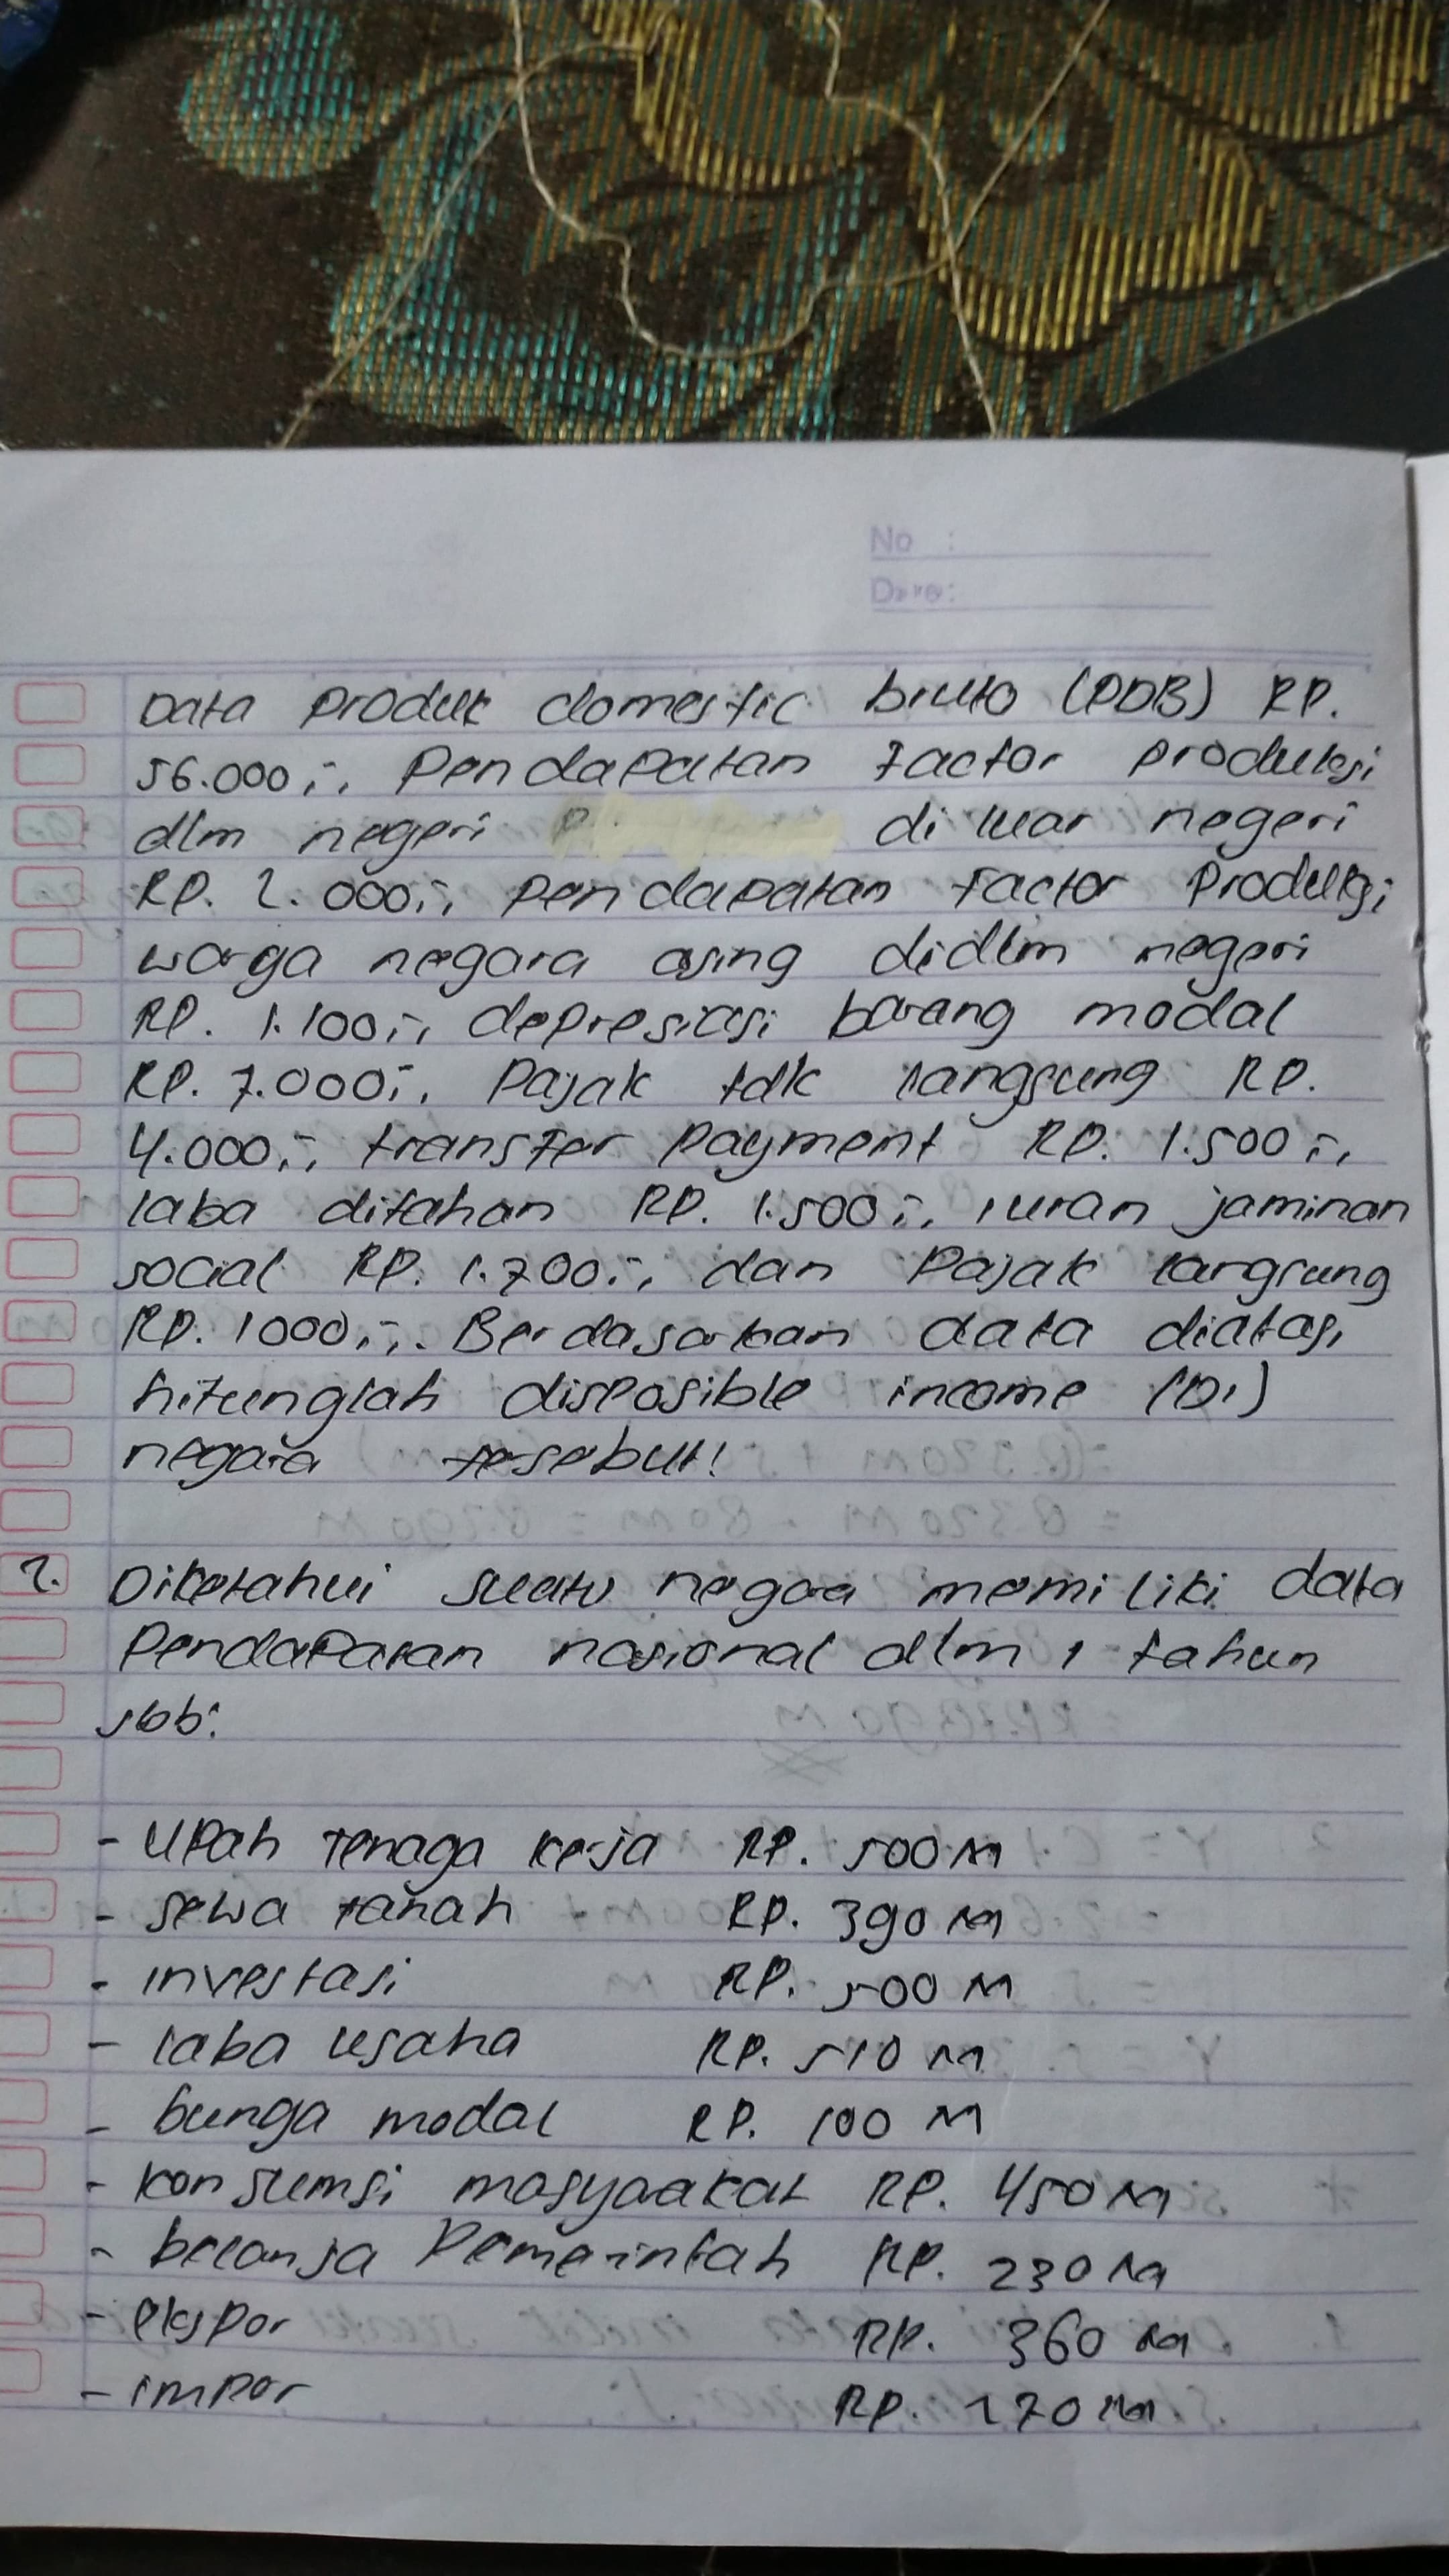 No :
Date:
Data produk domestic bruto (PDB) RP.
56.000,-, Pendapatan factor produksi
dlm negeri di luar negeri
RP. 2.000,-, pendapatan factor Produksi
warga negara asing didlm negeri
RP. 1.100,-, depresiasi barang modal
RP. 7.000,-, Pajak tdk langsung RP.
4.000,-, transfer payment RP. 1.500,-,
laba ditahan RP. 1.500,-, iuran jaminan
social RP. 1.700,-, dan Pajak langsung
RP. 1000,-,. Berdasarkan data diatas,
hitunglah disposible income (DI)
negara tersebut!
2. Diketahui suatu negara memiliki data
Pendapatan nasional dlm 1 tahun
sbb:
- Upah tenaga kerja RP. 500 M
- sewa tanah RP. 390 M
- investasi RP. 500 M
- laba usaha RP. 510 M
- bunga modal RP. 100 M
- konsumsi masyaakat RP. 450 M
- belanja Pemerintah RP. 230 M
- ekspor RP. 360 M
- impor RP. 270 M